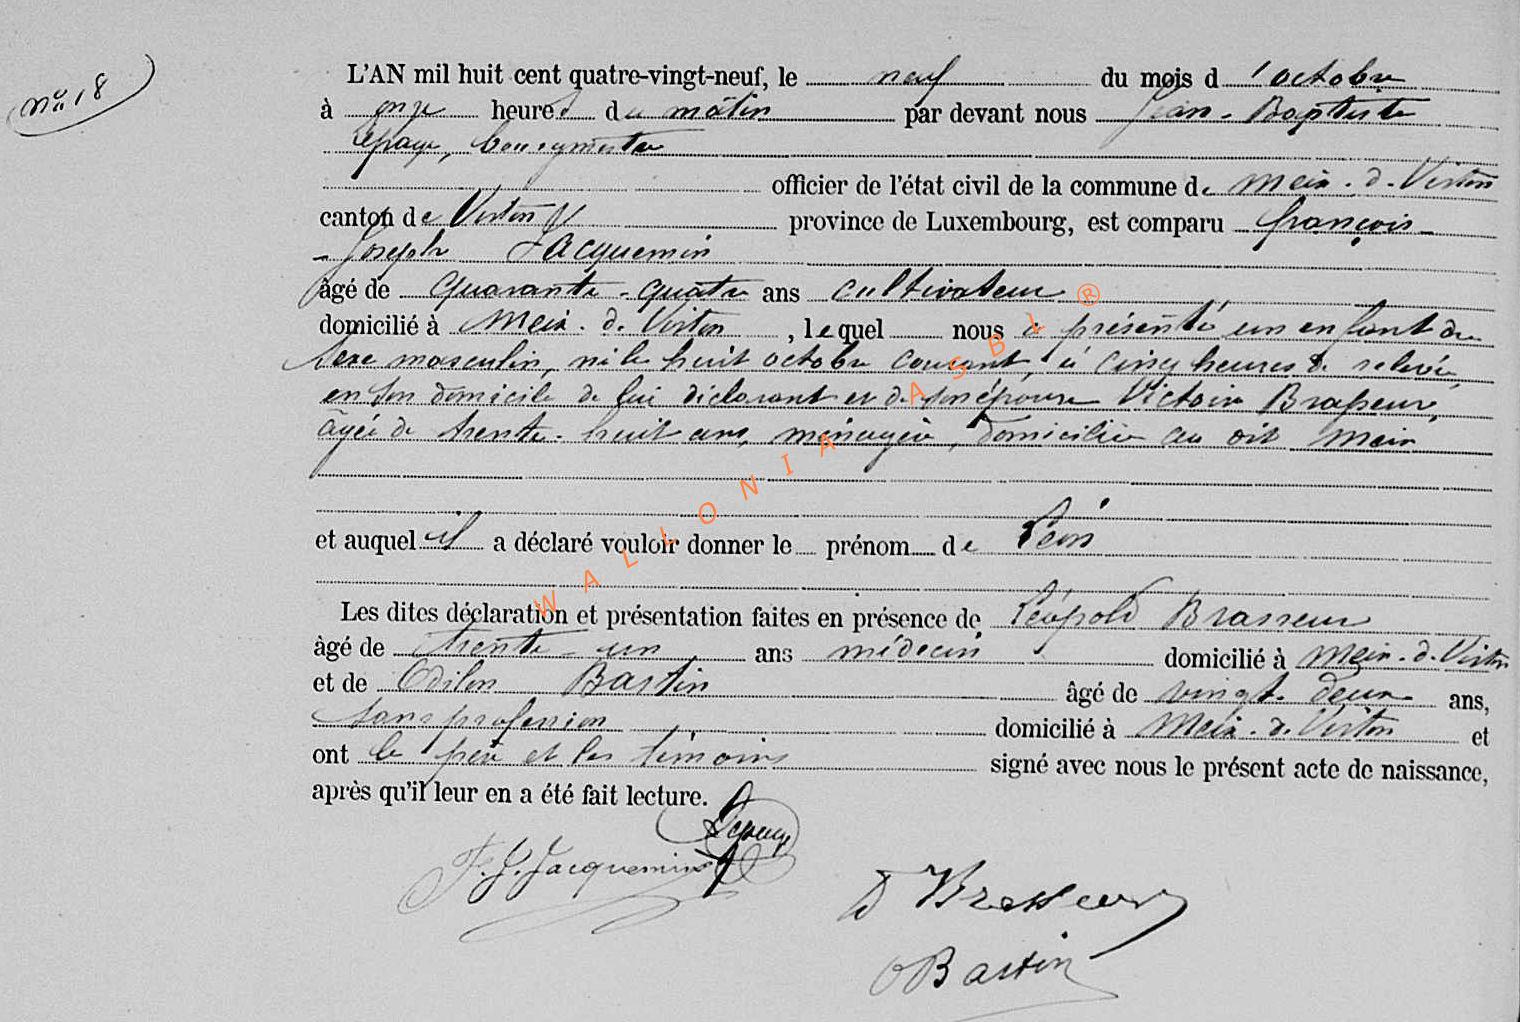 no 18
L'AN mil huit cent quatre-vingt-neuf, le neuf du mois d'octobre
à onze heures du matin par devant nous Jean-Baptiste
Lepage, bourgmestre
officier de l'état civil de la commune de Meix-d-Virton
canton de Virton province de Luxembourg, est comparu François-
-Joseph Jacquemin
âgé de quarante-quatre ans cultivateur
domicilié à Meix-d-Virton, lequel nous a présenté un enfant du
sexe masculin, né le huit octobre courant, à cinq heures de relevée,
en son domicile de lui déclarant et de son épouse Victoire Brasseur,
âgée de trente-huit ans, ménagère, domiciliée au dit Meix
et auquel il a déclaré vouloir donner le prénom de Léon
Les dites déclaration et présentation faites en présence de Léopold Brasseur
âgé de trente-un ans médecin domicilié à Meix-d-Virton
et de Odilon Bastin âgé de vingt-deux ans,
sans profession domicilié à Meix-d-Virton et
ont le père et les témoins signé avec nous le présent acte de naissance,
après qu'il leur en a été fait lecture.
Lepage
F. J. Jacquemin
D Brasseur
O Bastin
WALLONIA ASBL ®